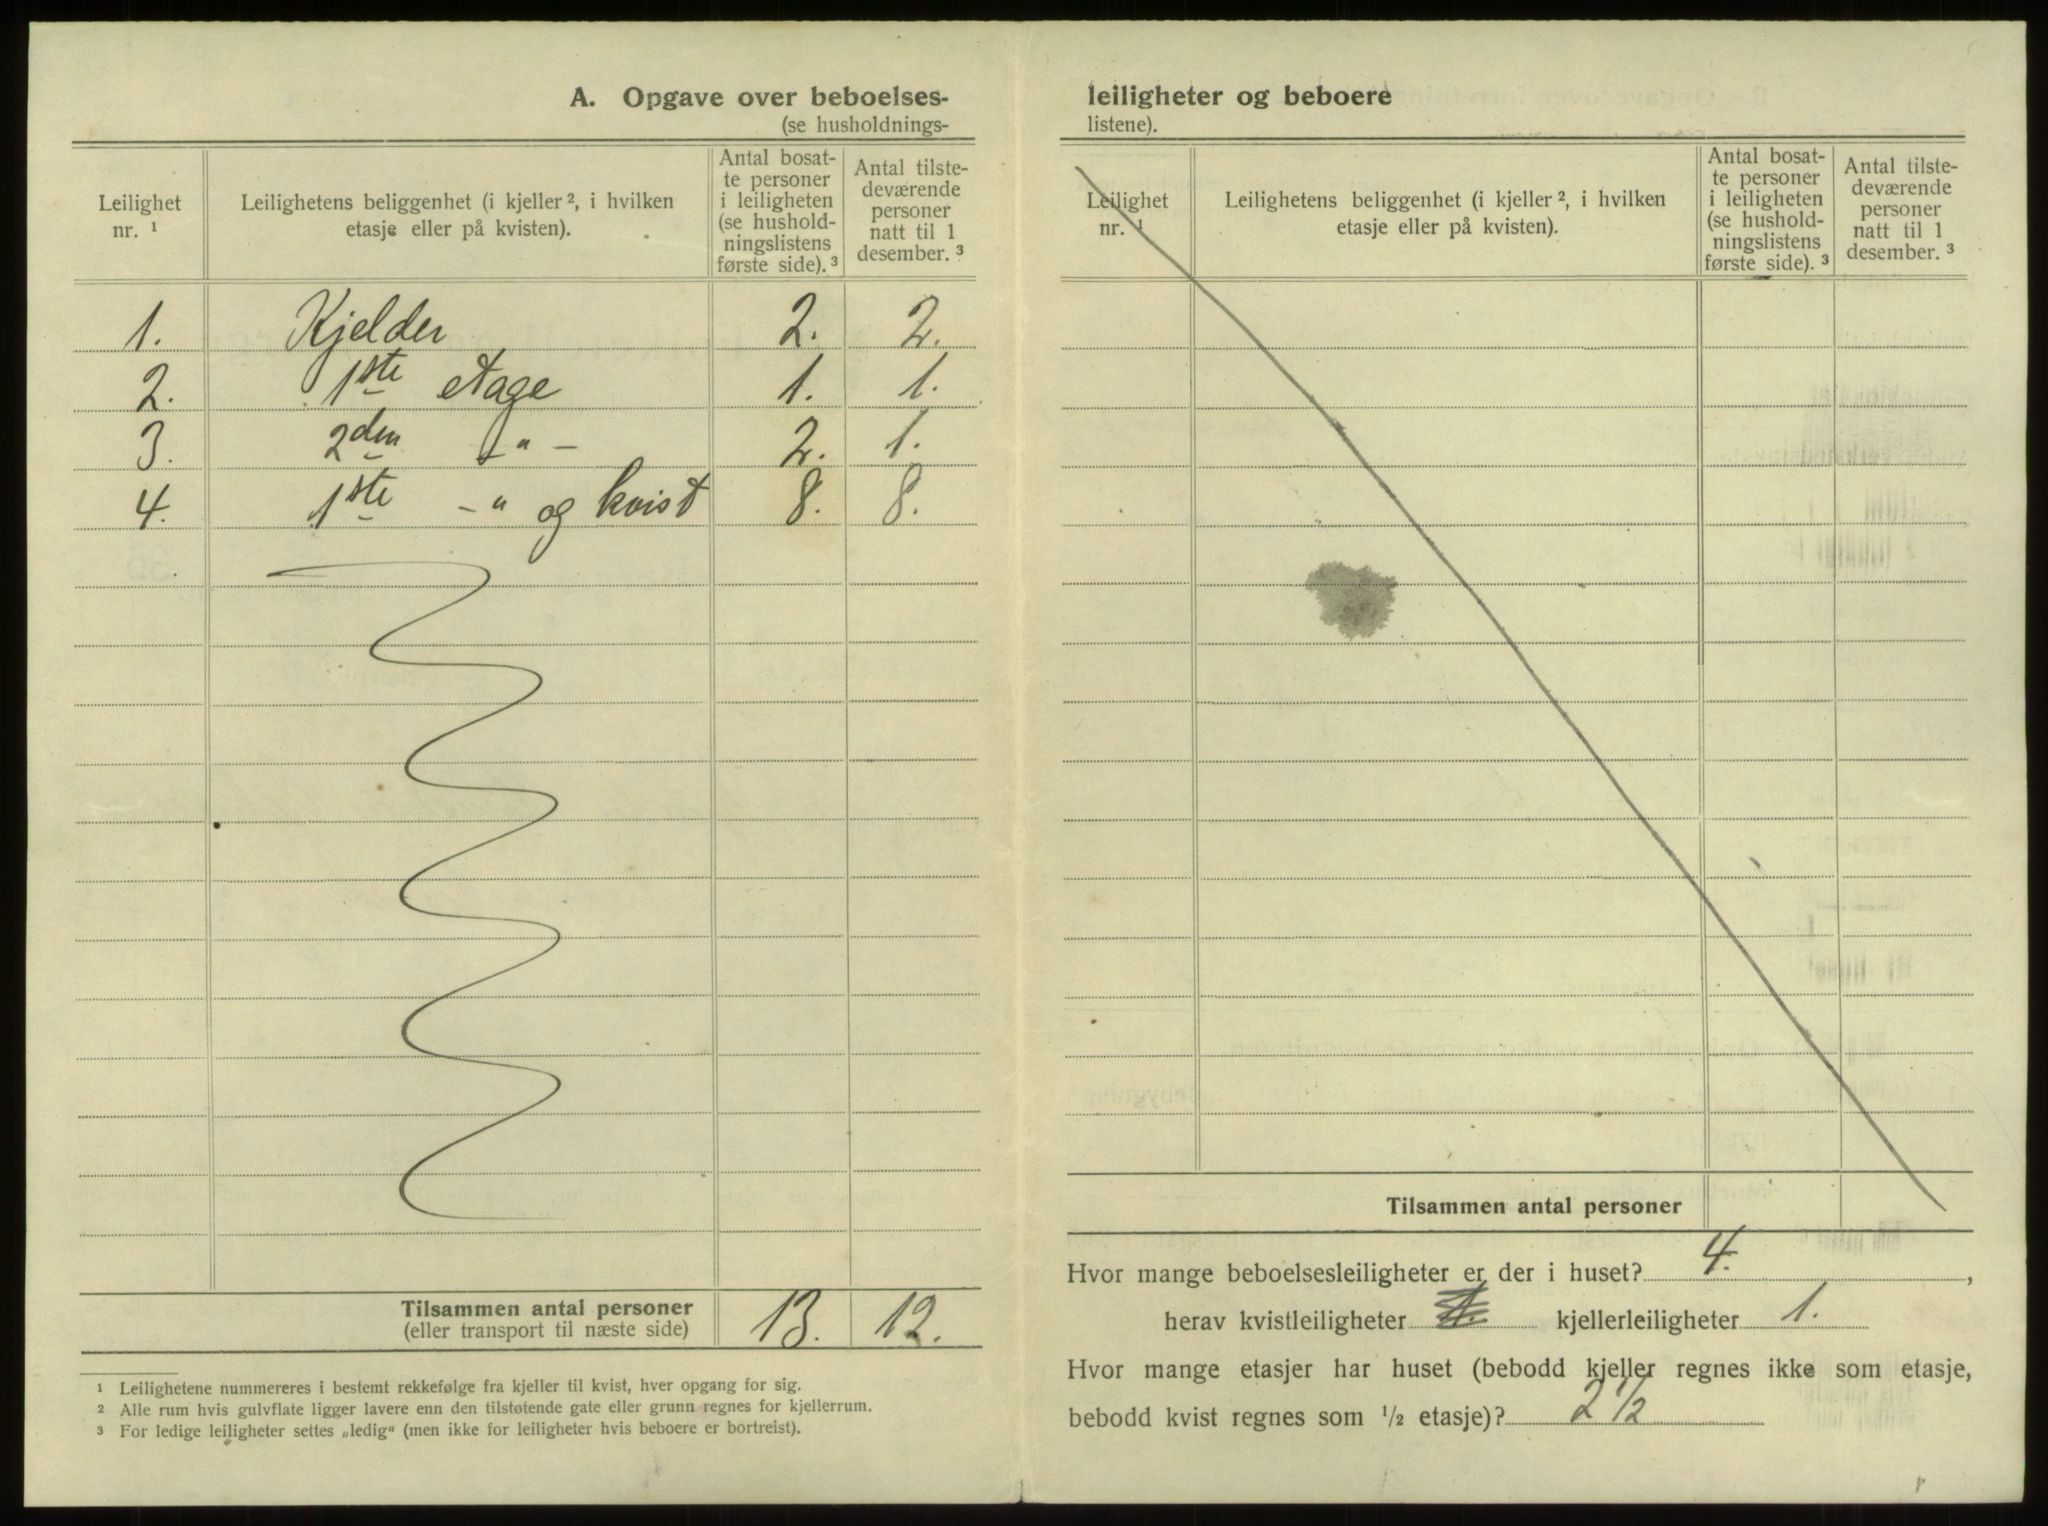 A. Opgave over beboelses-
(se husholdnings-
Leilighet
nr. ¹
Leilighetens beliggenhet (i kjeller ², i hvilken
etasje eller på kvisten).
Antal bosat-
te personer
i leiligheten
(se hushold-
ningslistens
første side). ³
Antal tilste-
deværende
personer
natt til 1
desember. ³
1. Kjelder 2. 2.
2. 1ste etage 1. 1.
3. 2den -"- 2. 1.
4. 1ste -" og kvist 8. 8.
Tilsammen antal personer 13. 12.
(eller transport til næste side)
¹ Leilighetene nummereres i bestemt rekkefølge fra kjeller til kvist, hver opgang for sig.
² Alle rum hvis gulvflate ligger lavere enn den tilstøtende gate eller grunn regnes for kjellerrum.
³ For ledige leiligheter settes „ledig“ (men ikke for leiligheter hvis beboere er bortreist).
leiligheter og beboere
listene).
Leilighet
nr. ¹
Leilighetens beliggenhet (i kjeller ², i hvilken
etasje eller på kvisten).
Antal bosat-
te personer
i leiligheten
(se hushold-
ningslistens
første side). ³
Antal tilste-
deværende
personer
natt til 1
desember. ³
Tilsammen antal personer
Hvor mange beboelsesleiligheter er der i huset? 4.,
herav kvistleiligheter kjellerleiligheter 1.
Hvor mange etasjer har huset (bebodd kjeller regnes ikke som etasje,
bebodd kvist regnes som ½ etasje)? 2 ½